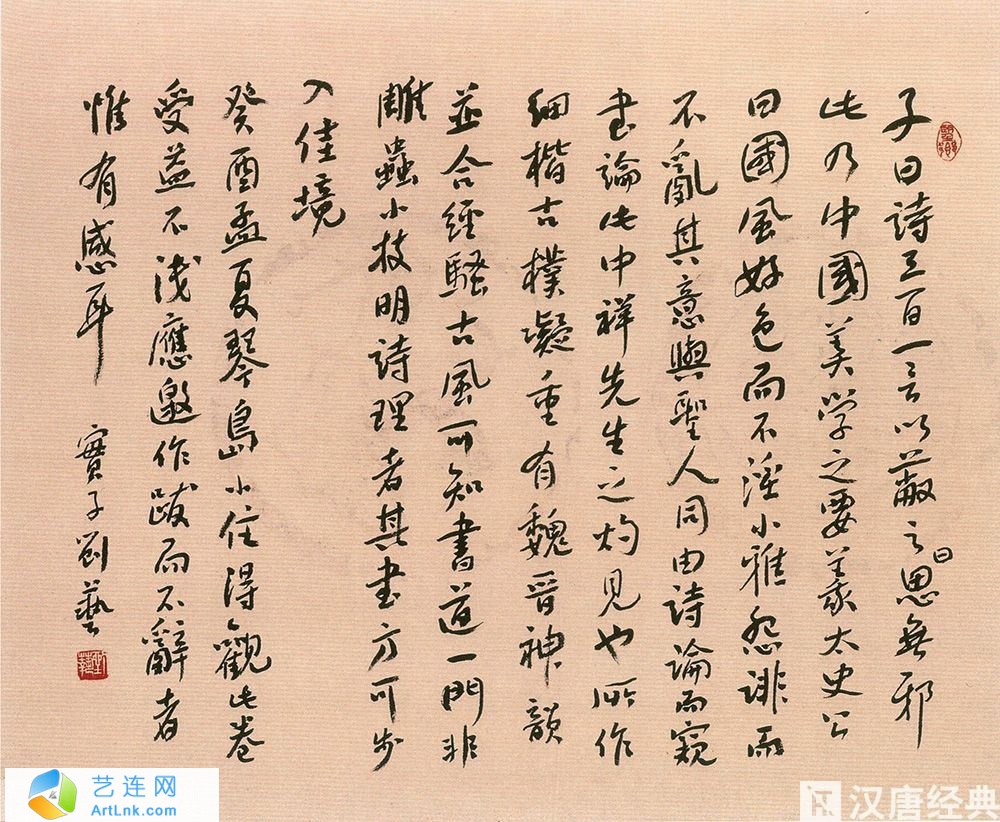 子曰詩三百一言以蔽之曰思無邪
此乃中國美學之要義太史公
曰國風好色而不淫小雅怨誹而
不亂其意與聖人同由詩論而窺
書論此中祥先生之灼見也所作
細楷古樸凝重有魏晉神韻
並合經騷古風可知書道一門非
雕蟲小技明詩理者其書方可步
入佳境
癸酉孟夏琴島小住得觀此卷
受益不淺應邀作跋而不辭者
惟有感耳 實子劉藝
艺连网
ArtLnk.com
汉唐经典